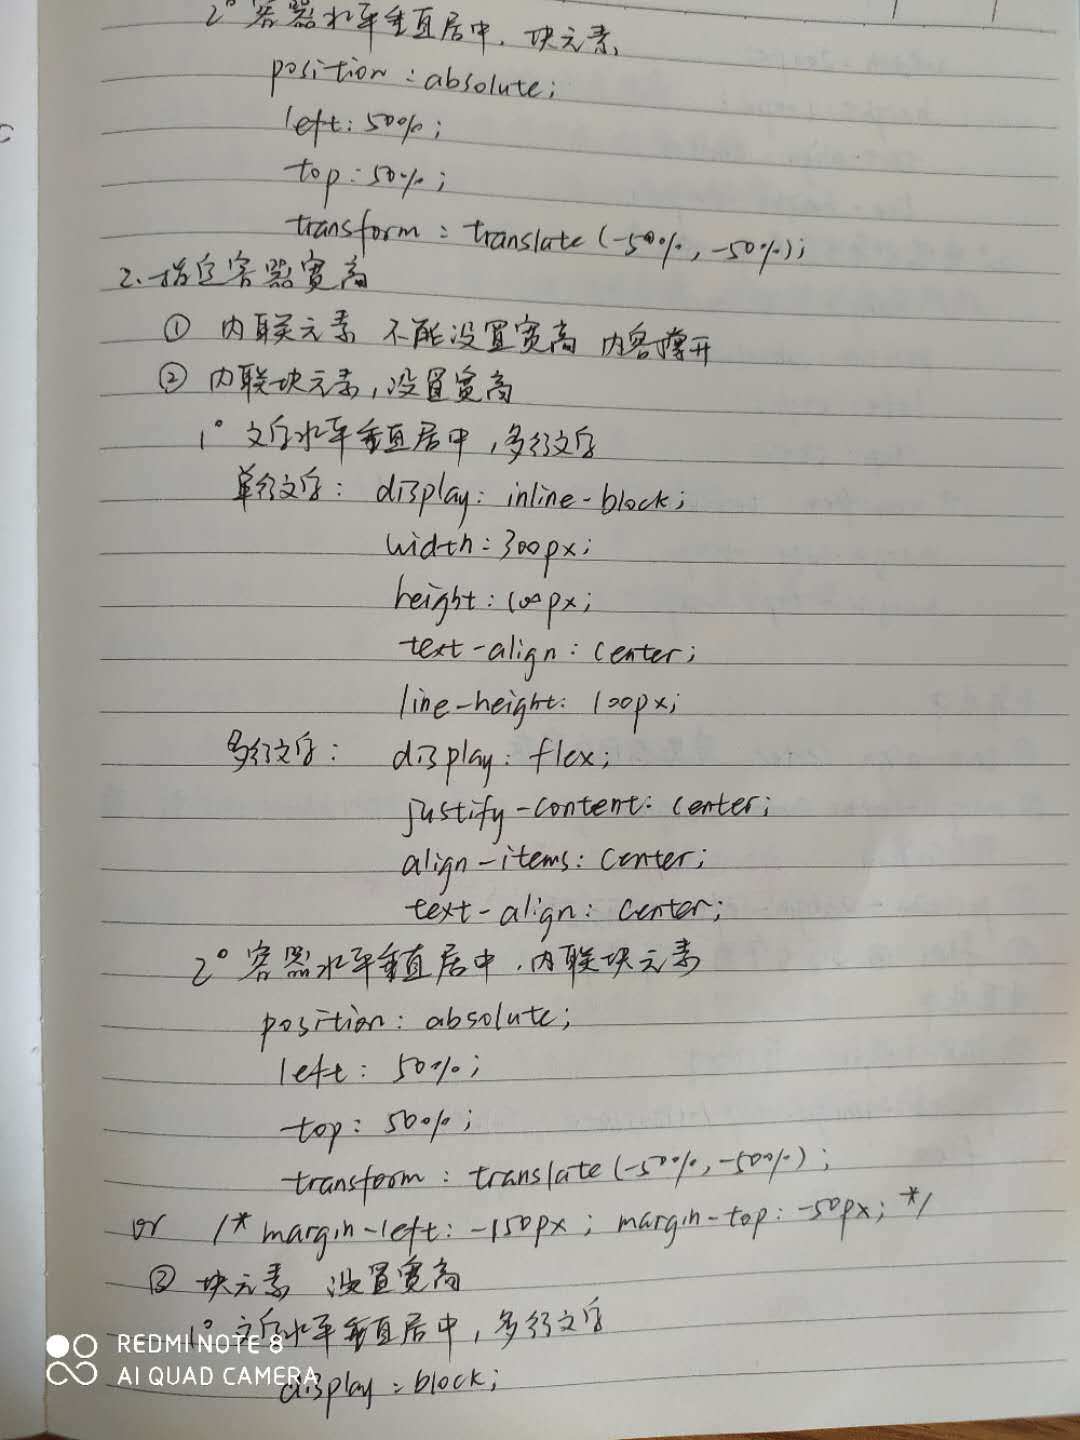 2° 容器水平垂直居中，块元素
position：absolute;
left：50%;
top：50%;
transform：translate(-50%, -50%);
2、指定容器宽高
① 内联元素 不能设置宽高 内容撑开
② 内联块元素，设置宽高
1° 文字水平垂直居中，多行文字
单行文字：display：inline-block;
width：300px;
height：100px;
text-align：center;
line-height：100px;
多行文字：display：flex;
justify-content：center;
align-items：center;
text-align：center;
2° 容器水平垂直居中，内联块元素
position：absolute;
left：50%;
top：50%;
transform：translate(-50%, -50%);
or /* margin-left：-150px；margin-top：-50px；*/
③ 块元素 设置宽高
1° 文字水平垂直居中，多行文字
display：block;
REDMI NOTE 8
AI QUAD CAMERA